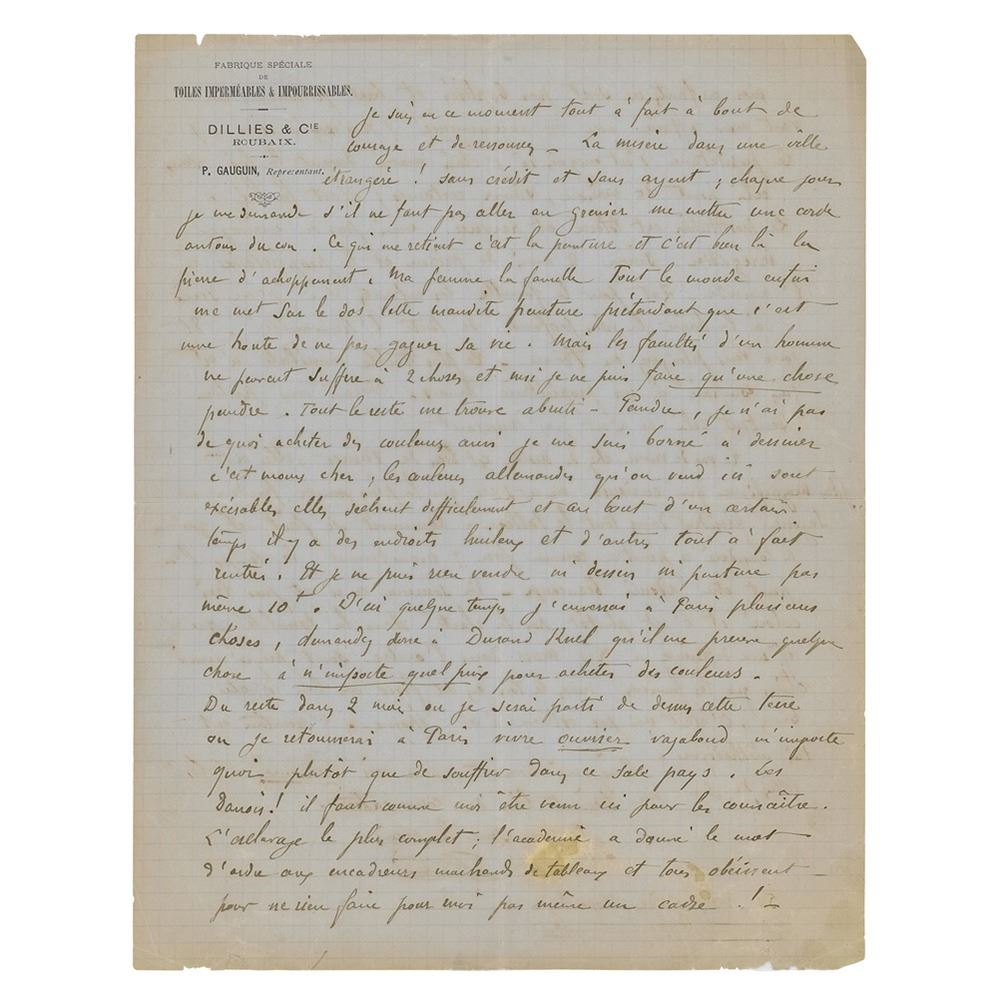 FABRIQUE SPÉCIALE
DE
TOILES IMPERMÉABLES & IMPOURRISSABLES.
DILLIES & CIE
ROUBAIX.
P. GAUGUIN, Représentant.
Je suis en ce moment tout à fait à bout de
courage et de ressources – La misère dans une ville
étrangère ! sans crédit et sans argent ; chaque jour
je me demande s'il ne faut pas aller au grenier me mettre une corde
autour du cou. Ce qui me retient c'est la peinture et c'est bien là la
pierre d'achoppement. Ma femme, la famille Tout le monde enfin
me met sur le dos cette maudite peinture prétendant que c'est
une honte de ne pas gagner sa vie. Mais les facultés d'un homme
ne peuvent suffire à 2 choses et moi je ne puis faire qu'une chose
peindre. Tout le reste me trouve abruti – Peindre, je n'ai pas
de quoi acheter des couleurs aussi je me suis borné à dessiner
c'est moins cher ; les couleurs allemandes qu'on vend ici sont
exécrables elles sèchent difficilement et au bout d'un certain
temps il y a des endroits huileux et d'autres tout à fait
rentrés. Et je ne puis rien vendre ni dessin ni peinture pas
même 10f. D'ici quelque temps j'enverrai à Paris plusieurs
choses, demandez donc à Durand Ruel qu'il me prenne quelque
chose à n'importe quel prix pour acheter des couleurs.
Du reste dans 2 mois ou je serai parti de dessus cette terre
ou je retournerai à Paris vivre ouvrier vagabond n'importe
quoi plutôt que de souffrir dans ce sale pays. Les
Danois! il faut comme moi être venu ici pour les connaître.
L'esclavage le plus complet ; l'académie a donné le mot
d'ordre aux encadreurs marchands de tableaux et tous obéissent
pour ne rien faire pour moi pas même un cadre. ! –